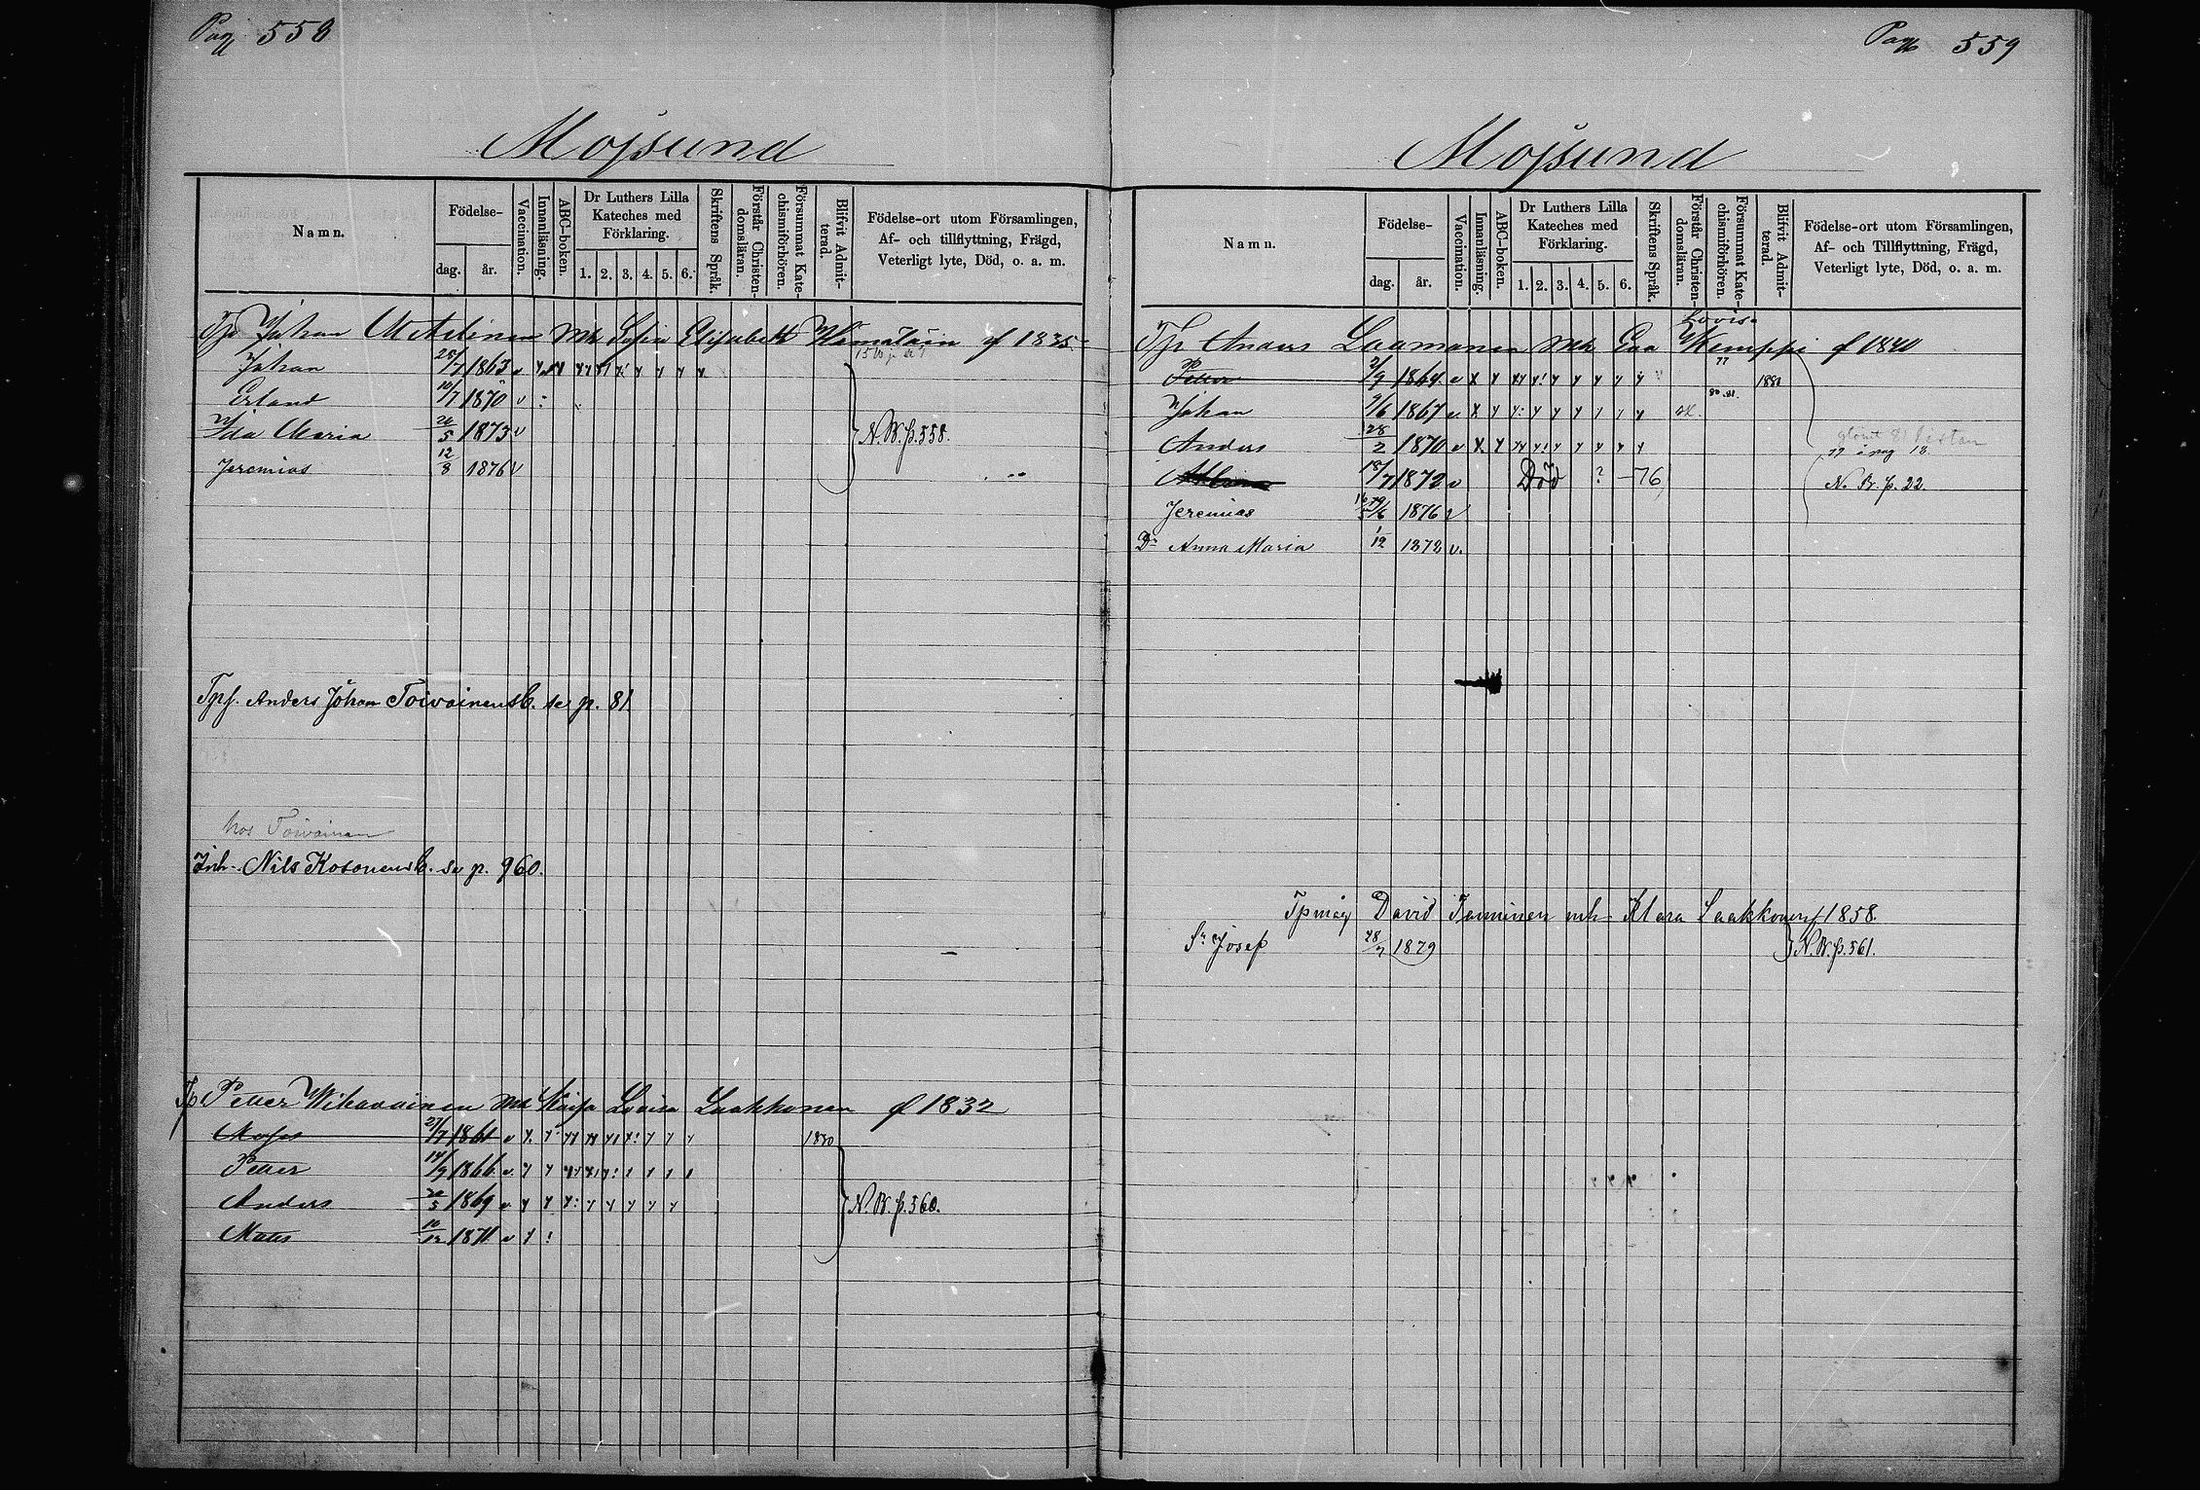 Pag 558
Mojsund
Namn.
Födelse-
dag.
år.
Vaccination.
Innanläsning.
ABC-boken.
Dr Luthers Lilla
Kateches med
Förklaring.
1. 2. 3. 4. 5. 6.
Skriftens Språk.
Förstår Christen-
domsläran.
Försummat Kate-
chismiförhören.
Blifvit Admit-
terad.
Födelse-ort utom Församlingen,
Af- och tillflyttning, Frägd,
Veterligt lyte, Död, o. a. m.
Tp Johan mh Sofia Elisabeth f 1835
Johan 25/7 1863 v
Erland 10/7 1870 v
Ida Maria 20/5 1873 v
N.B.p.558.
Jeremias 12/8 1876 v
Tpf. Anders Johan Toivainens b. se p. 81
hos Toivainen
Inh. Nils Kosonens b. se p. 960.
Tp Petter Wihavainen mh Kaisa Lovisa Laakkonen f 1832
27/7 1861 v 1880
Petter 14/9 1866 v
Anders 20/5 1869 v
N.B.p.560.
Mats 10/12 1871 v
Pag 559
Mojsund
Namn.
Födelse-
dag.
år.
Vaccination.
Innanläsning.
ABC-boken.
Dr Luthers Lilla
Kateches med
Förklaring.
1. 2. 3. 4. 5. 6.
Skriftens Språk.
Förstår Christen-
domsläran.
Försummat Kate-
chismiförhören.
Blifvit Admit-
terad.
Födelse-ort utom Församlingen,
Af- och Tillflyttning, Frägd,
Veterligt lyte, Död, o. a. m.
Lovisa
Tp Anders Laamanen mh Eva Kemppi f 1840
Petter 2/9 1864 v 77 1881
Johan 9/6 1867 v 80 81.
Anders 28/2 1870 v
18/7 1872 v Död ? -76
N. B. p. 22.
Jeremias 1876 v
Dr Anna Maria 1/12 1872 v.
Tpmåg David Tamminen mh Klara Laakkonen f 1858.
Sr Josef 28/7 1879
N.B.p.561.